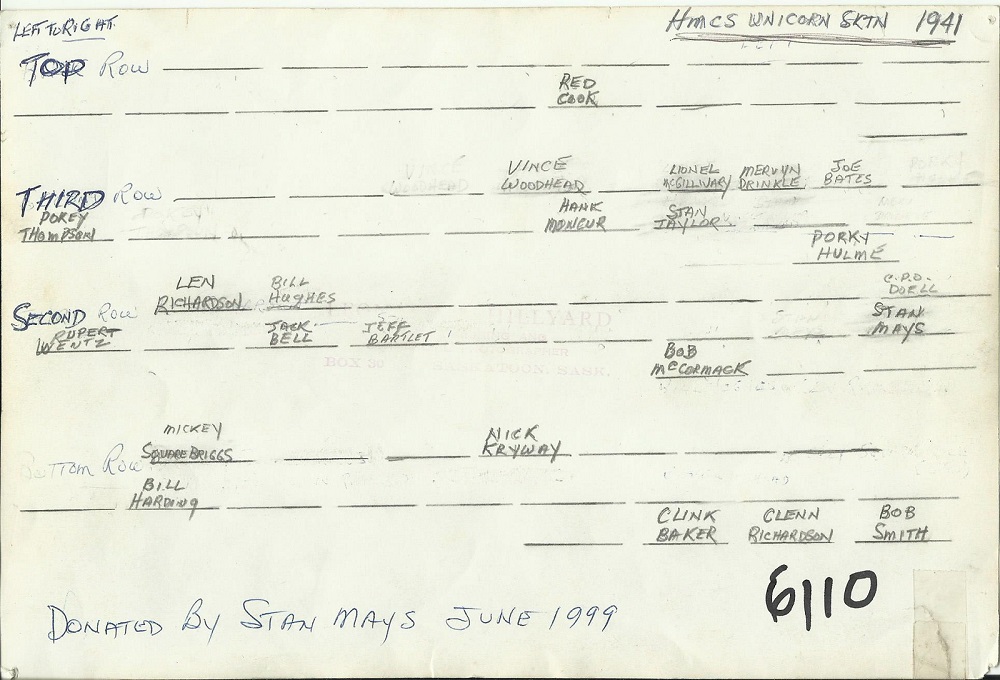 LEFT TO RIGHT.
HMCS UNICORN SKTN 1941
TOP ROW
RED
COOK
THIRD ROW
VINCE
WOODHEAD
LIONEL
McGILLIVARY
MERVYN
DRINKLE
JOE
BATES
POKEY
THOMPSON
HANK
MONCUR
STAN
TAYLOR
PORKY
HULME
SECOND ROW
LEN
RICHARDSON
BILL
HUGHES
C.P.O.
DOELL
RUPERT
WENTZ
JACK
BELL
JEFF
BARTLET
STAN
MAYS
HILLYARD
BOX 30
SASKATOON, SASK.
BOB
McCORMACK
BOTTOM ROW
MICKEY
SQUAREBRIGGS
NICK
KRYWAY
BILL
HARDING
CLINK
BAKER
GLENN
RICHARDSON
BOB
SMITH
6110
DONATED BY STAN MAYS JUNE 1999